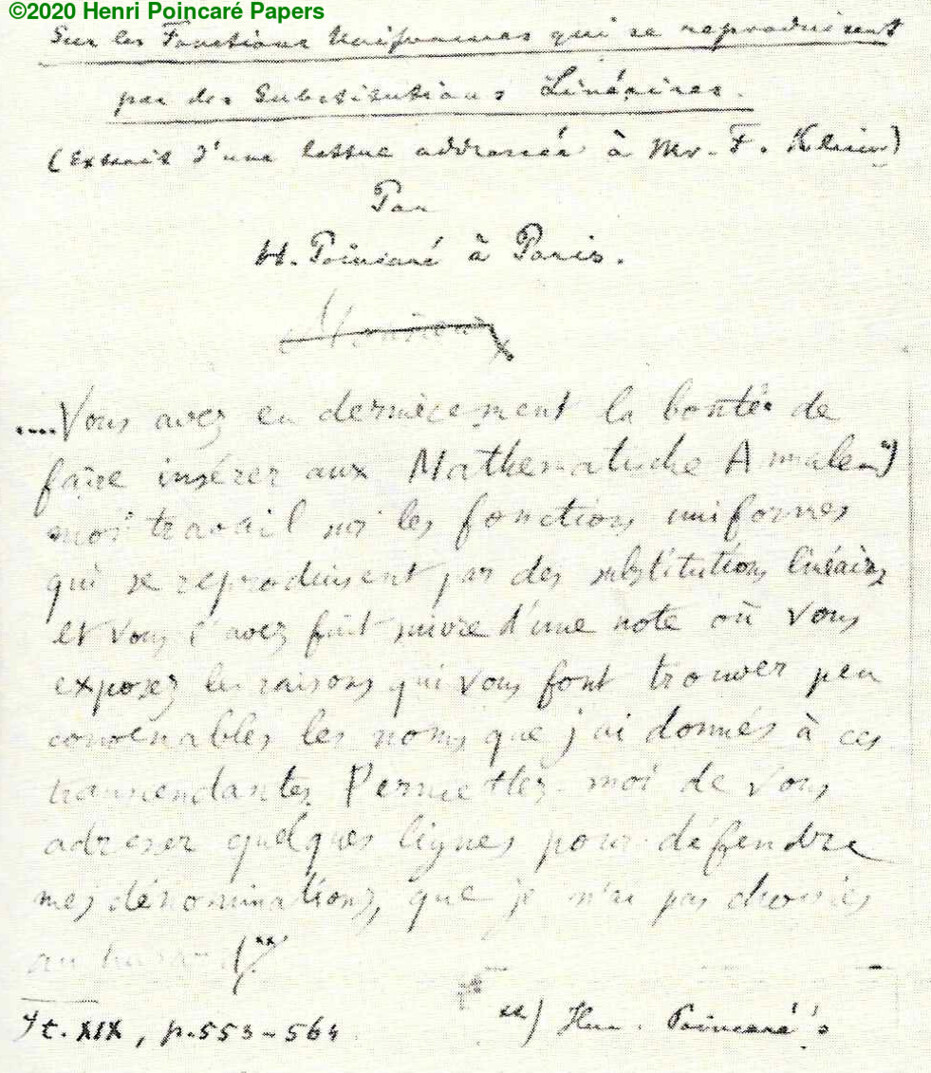 ©2020 Henri Poincaré Papers
Sur les Fonctions Uniformes qui se reproduisent
par des Substitutions Linéaires.
(Extrait d'une lettre addressée à Mr. F. Klein)
Par
H. Poincaré à Paris.
Monsieur
....Vous avez eu dernièrement la bonté de
faire insérer aux Mathematische Annalen*)
mon travail sur les fonctions uniformes
qui se reproduisent par des substitutions linéaires
et vous l'avez fait suivre d'une note où vous
exposez les raisons qui vous font trouver peu
convenables les noms que j'ai donnés à ces
transcendantes. Permettez-moi de vous
adresser quelques lignes pour défendre
mes dénominations, que je n'ai pas choisies
au hasard.**)
*) t. XIX, p. 553-564.
**) Herr Poincaré's